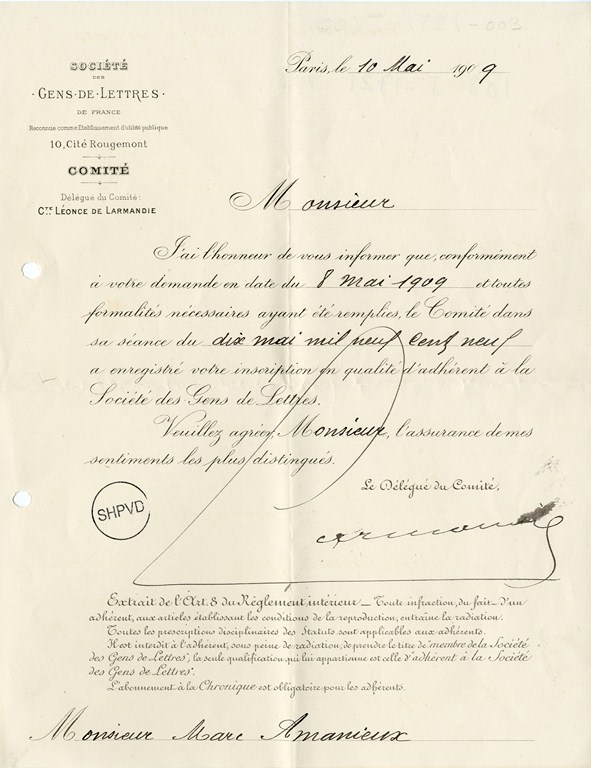 SOCIÉTÉ
DES
GENS-DE-LETTRES
DE FRANCE
Reconnue comme Etablissement d'utilité publique
10, Cité Rougemont
COMITÉ
Délégué du Comité:
CTE LÉONCE DE LARMANDIE
Paris, le 10 Mai 1909
Monsieur
J'ai l'honneur de vous informer que, conformément
à votre demande en date du 8 mai 1909 et toutes
formalités nécessaires ayant été remplies, le Comité dans
sa séance du dix mai mil neuf cent neuf
a enregistré votre inscription en qualité d'adhérent à la
Société des Gens de Lettres.
Veuillez agréer, Monsieur, l'assurance de mes
sentiments les plus distingués.
Le Délégué du Comité,
SHPVD
Extrait de l'Art. 8 du Règlement intérieur _ Toute infraction, du fait d'un
adhérent, aux articles établissant les conditions de la reproduction, entraîne la radiation.
Toutes les prescriptions disciplinaires des Statuts sont applicables aux adhérents.
Il est interdit à l'adhérent, sous peine de radiation, de prendre le titre de "membre de la Société
des Gens de Lettres", la seule qualification qui lui appartienne est celle d'"adhérent à la Société
des Gens de Lettres".
L'abonnement à la Chronique est obligatoire pour les adhérents.
Monsieur Marc Amanieux